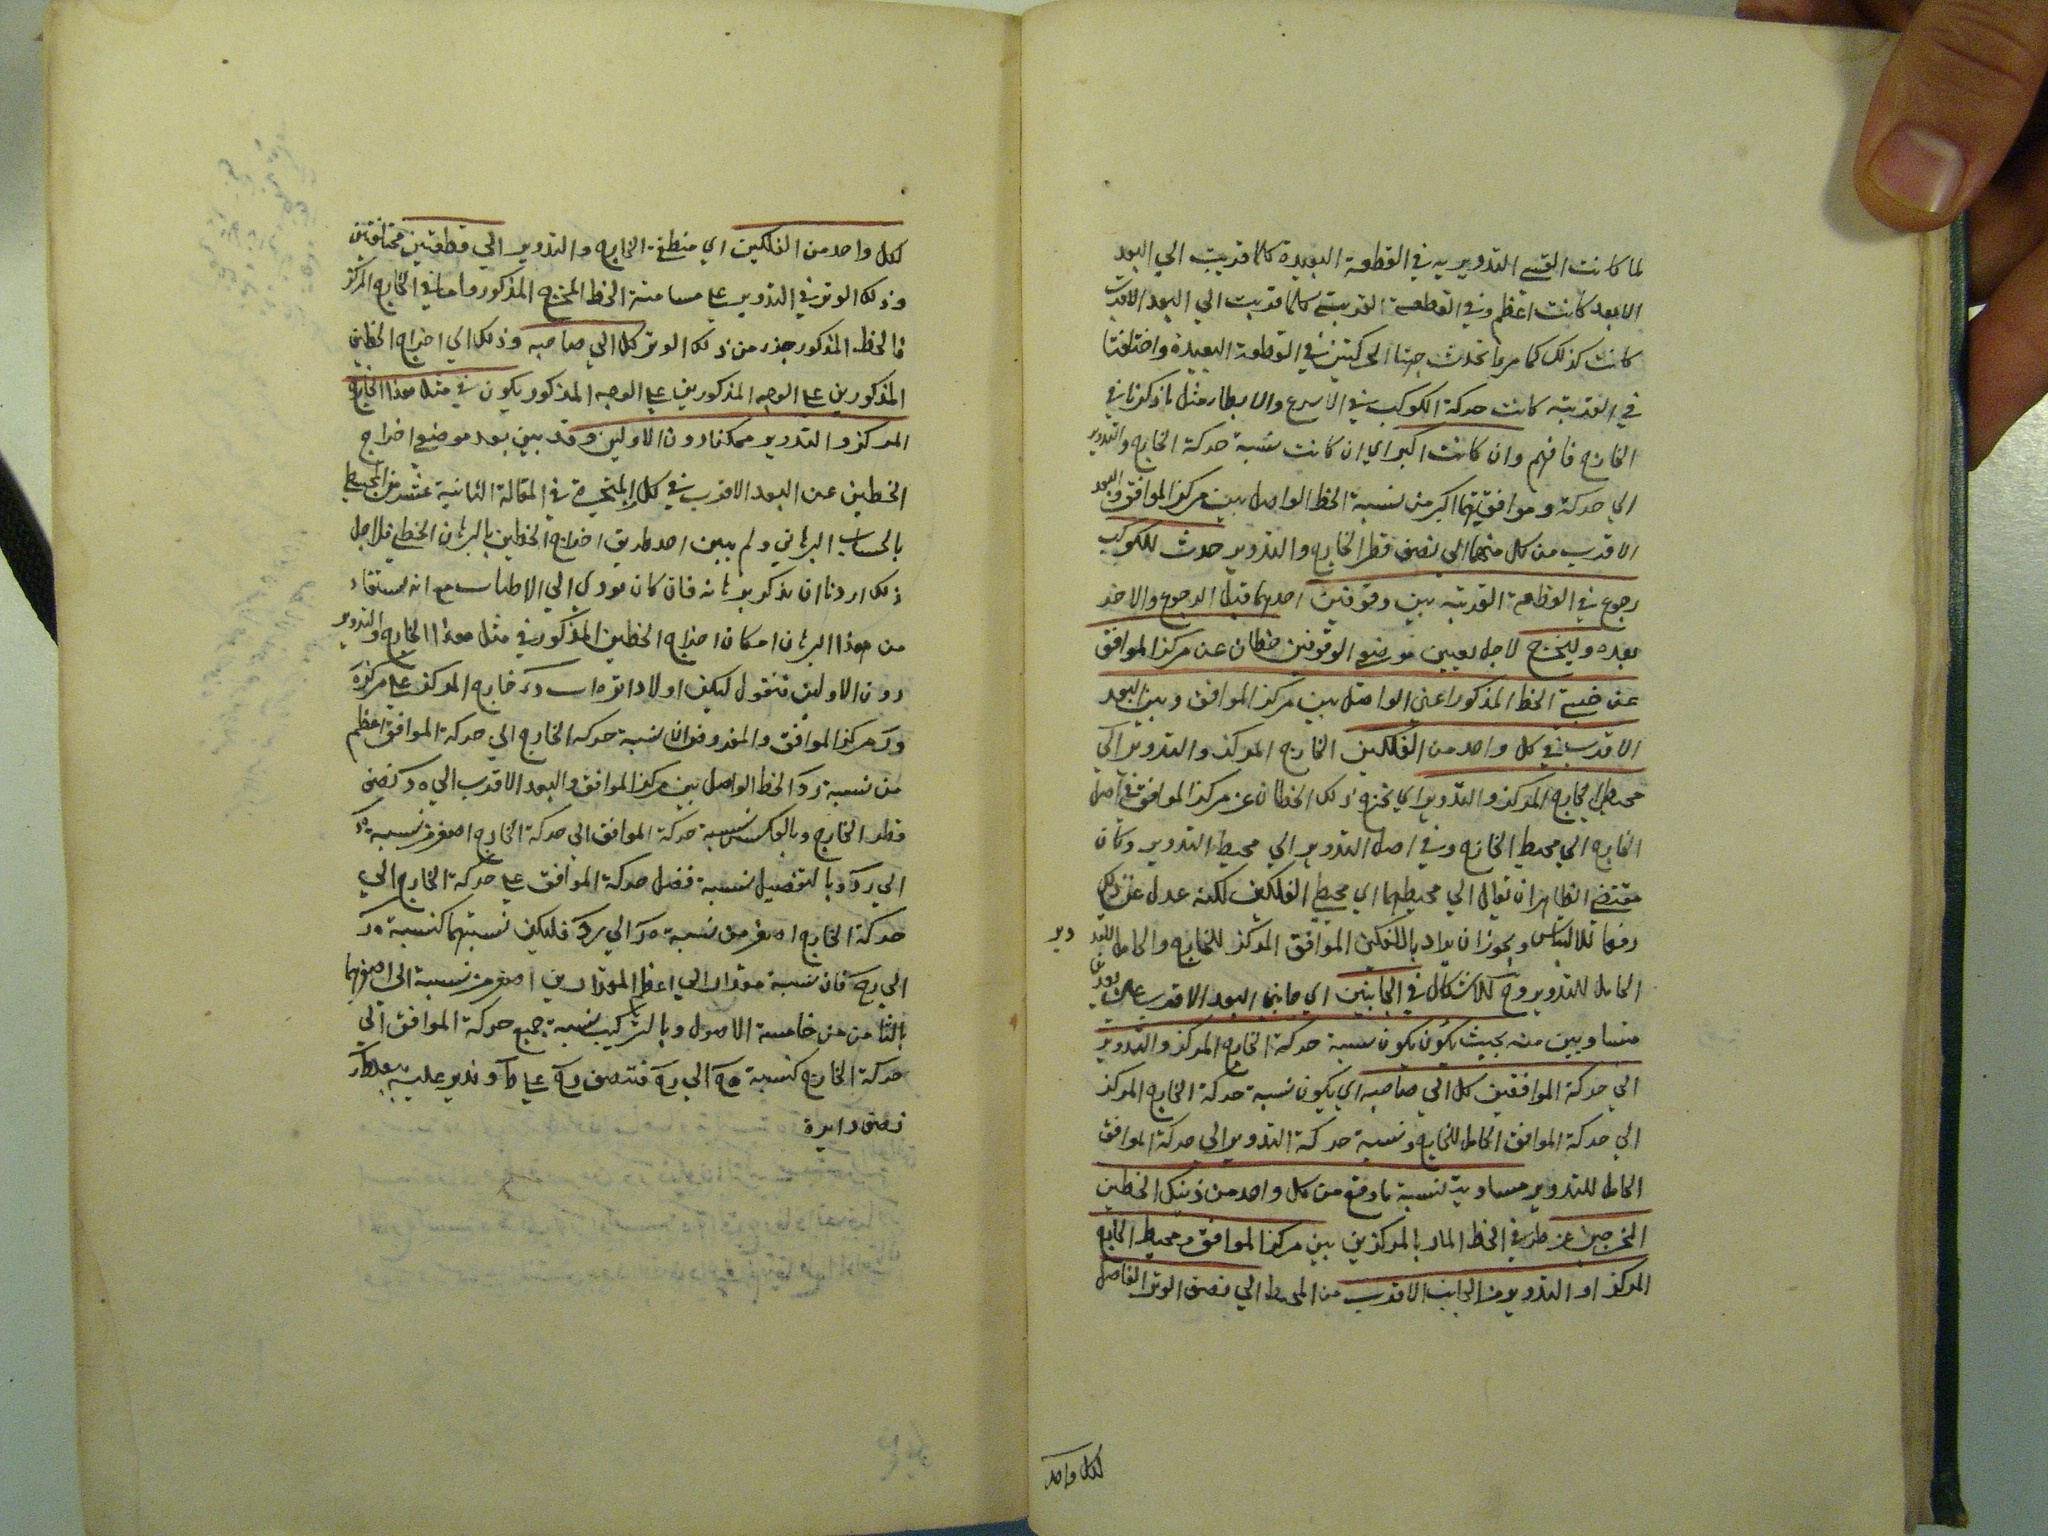 لما كانت القسي التدويرية في القطعة البعيدة كلما قربت الي البعد
الابعد كانت اعظم وفي القطعة القريبة كلما قربت الي البعد الاقرب
كانت كذلك كما مر فاتحدث جهتا الحركتين في القطعة البعيدة واختلفتا
في القريبة كانت حركة الكوكب في الاسرع والابطاء مثل ما ذكرنا في
الخارج فافهم وان كانت اكبر اي ان كانت نسبة حركة الخارج والتدوير
الي حركة موافقيهما اكبر من نسبة الخط الواصل بين مركز الموافق والبعد
الاقرب من كل منهما الي نصف قطر الخارج والتدوير حدث للكوكب
رجوع في القطعة القريبة بين وقوفين احدهما قبل الرجوع والاخر
بعده وليخرج لاجل تعيين موضعي الوقوفين خطان عن مركز الموافق
عن جنبتي الخط المذكور اعني الواصل بين مركز الموافق وبين البعد
الاقرب في كل واحد من الفلكين الخارج المركز والتدوير الي
محيطي الخارج المركز والتدوير اي يخرج ذلك الخطان عن مركز الموافق في اصل
الخارج الي محيط الخارج وفي اصل التدوير الي محيط التدوير وكان
مقتضي الظاهر ان يقال الي محيطهما اي محيطي الفلكين لكنه عدل عن ذلك
دفعا للالتباس ويجوز ان يراد بالفلكين الموافق المركز للخارج والحامل
الحامل للتدوير كلا شكال في الجانبين اي جانبي البعد الاقرب علي بعدين
متساويين منه بحيث يكون نسبة حركة الخارج المركز والتدوير
الي حركة الموافقين كل الي صاحبه اي يكون نسبة حركة الخارج المركز
الي حركة الموافق الحامل للخارج ونسبة حركة التدوير الي حركة الموافق
الحامل للتدوير مساوية لنسبة ما وقع من كل واحد من ذينك الخطين
المخرجين عن طرفي الخط المار بالمركزين بين مركز الموافق ومحيط الخارج
المركز او التدوير من الجانب الاقرب من المحيط الي نصف الوتر الفاصل
لكل واحد
لكل واحد من الفلكين اي منطقتي الخارج والتدوير الي قطعتين مختلفتين
وذلك الوتر في التدوير علي مسامتة الخط المخرج المذكور واما في الخارج المركز
فالخط المذكور جزء من ذلك الوتر كل الي صاحبه وذلك اي اخراج الخطين
المذكورين علي الوجه المذكورين علي الوجه المذكور يكون في مثل هذا الخارج
المركز والتدوير ممكنا دون الاولين وقد بين بعد موضعي اخراج
الخطين عن البعد الاقرب في كل المتحيرة في المقالة الثانية عشر من المجسطي
بالحساب البرهاني ولم يبين احد طريق اخراج الخطين بالبرهان الخطي فلاجل
ذلك اردنا ان نذكر برهانه فان كان يودي الي الاطناب مع انه يستفاد
من هذا البرهان امكان اخراج الخطين المذكور في مثل هذا الخارج والتدوير
دون الاولين فنقول ليكن اولا دائرة اب خارج المركز علي مركز ه
و مركز الموافق والمفروض ان نسبة حركة الخارج الي حركة الموافق اعظم
من نسبة الخط الواصل بين مركز الموافق والبعد الاقرب الي نصف
قطر الخارج وبالعكس نسبة حركة الموافق الي حركة الخارج اصغر من نسبة
الي وبالتفصيل نسبة فضل حركة الموافق علي حركة الخارج الي
حركة الخارج اصغر من نسبة الي فليكن نسبتهما كنسبة
الي فان نسبة مقدار الي اعظم المقدارين اصغر من نسبته الي اصغرهما
بالثامن من خامسة الاصول وبالتركيب نسبة جميع حركة الموافق الي
حركة الخارج كنسبة الي فننصف علي وندير عليه ببعد
نصف دايرة